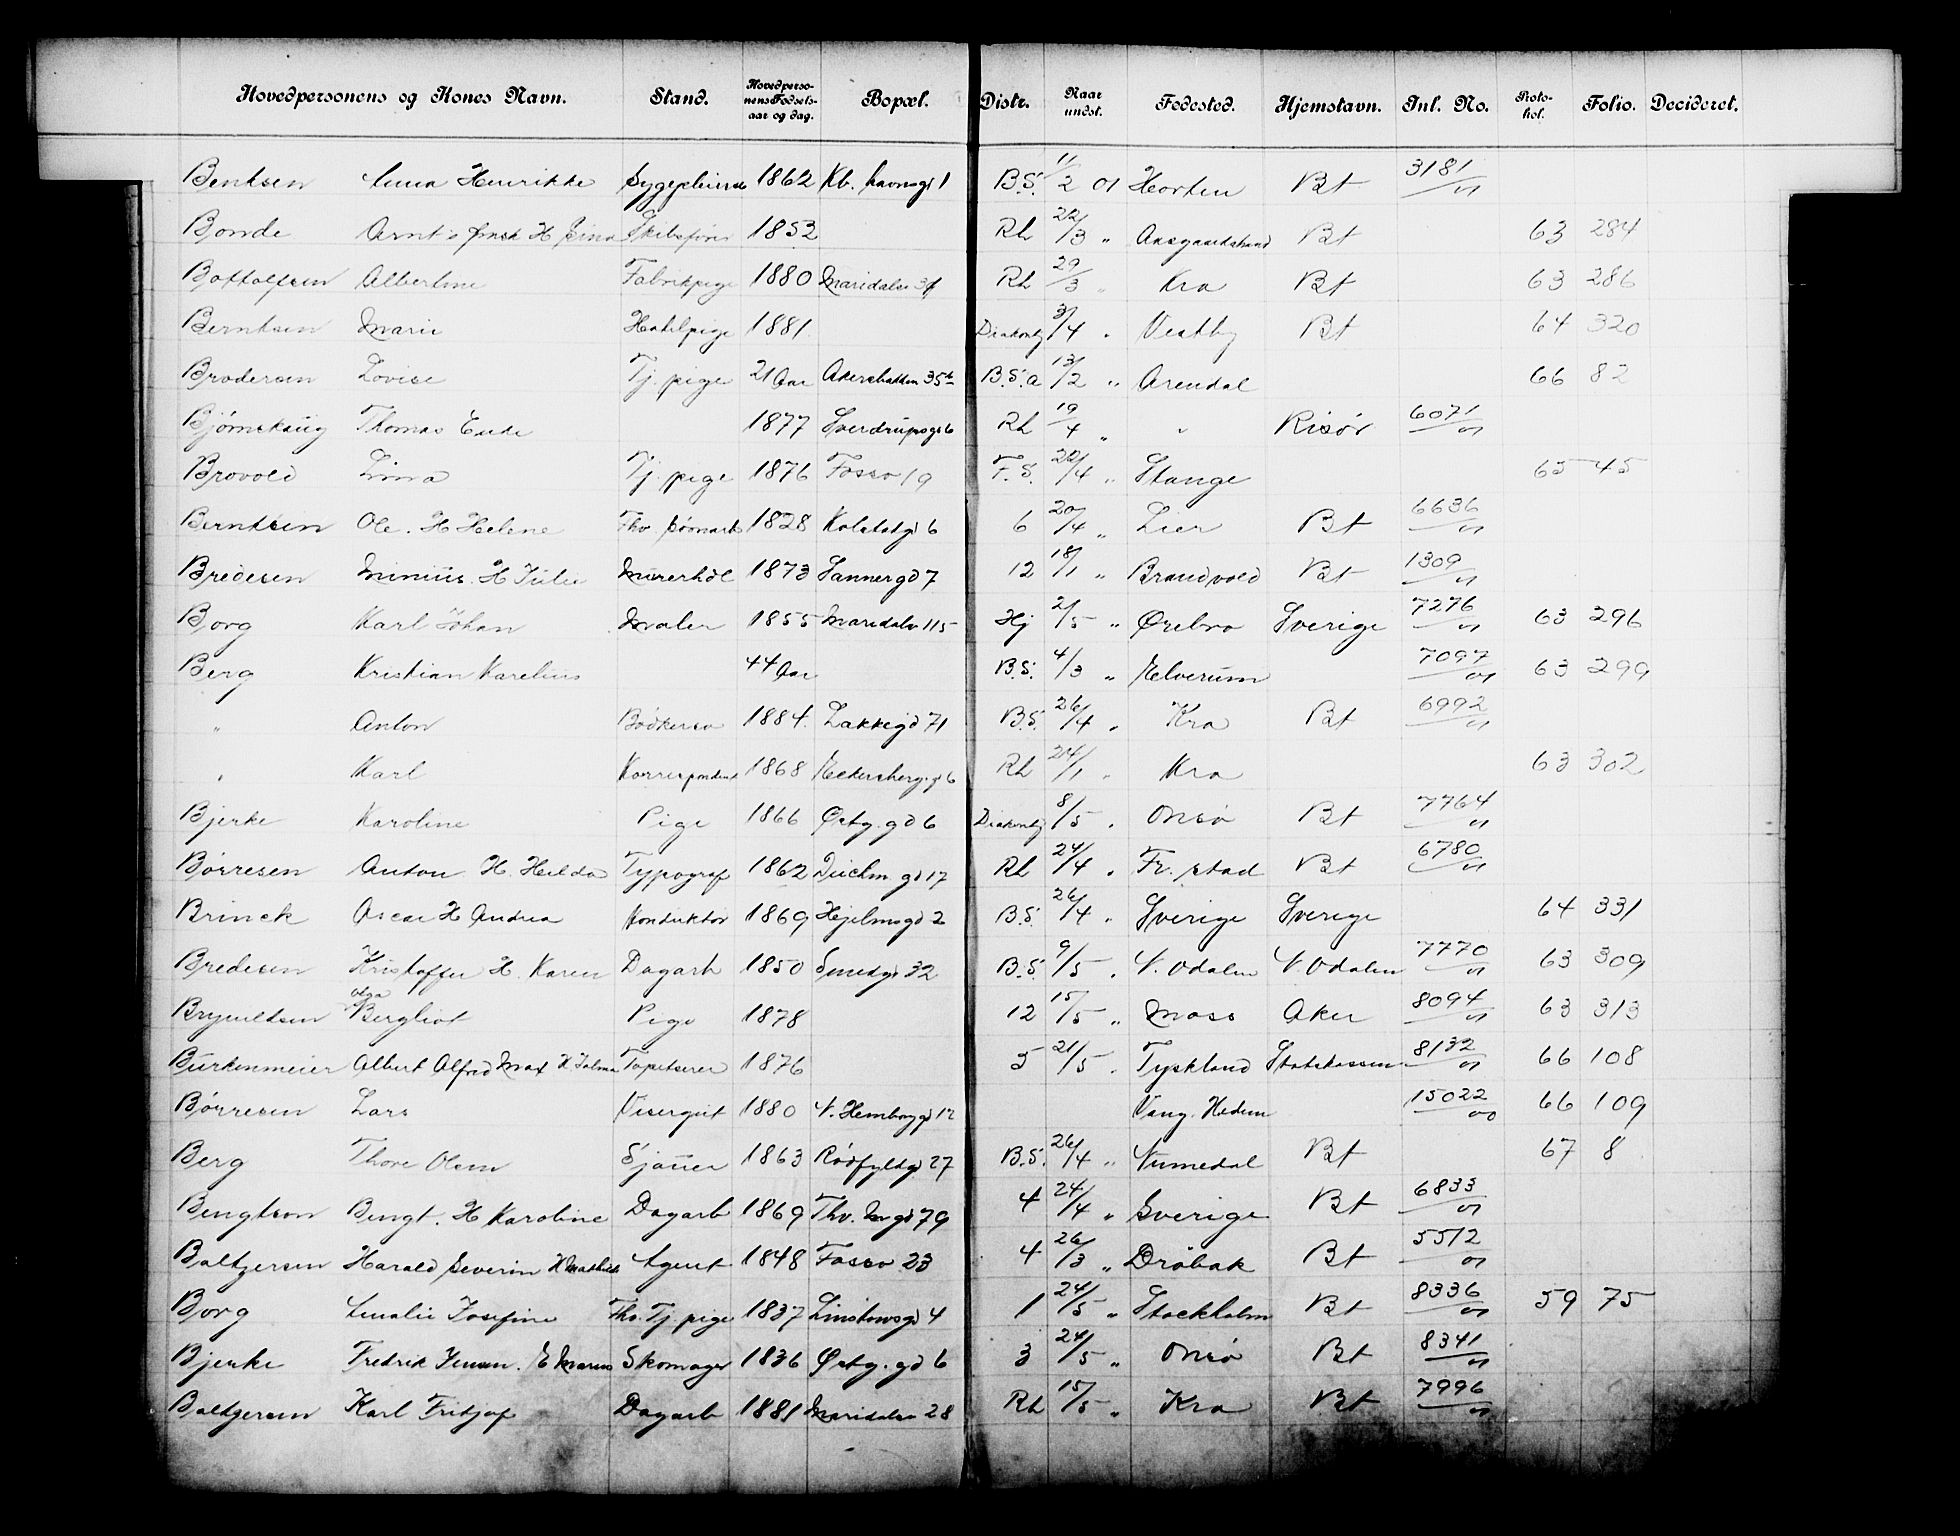 Hovedpersonens og Kones Navn. Stand. Hovedpersonens Fødselsaar og dag. Bopæl. Distr. Naar undst. Fødested. Hjemstavn. Inl. No. Protokol. Folio. Decideret.
Bentsen Anna Henrikke 1862 Kb. havnsgd 1 B.S. 11/2 01 Horten Bt 3181/01
Bonde 1852 Rh 22/3 " Aasgaardstrand Bt 63 284
Albertine Fabrikpige 1880 Maridalsv Rh 29/3 " Kra Bt 63 286
Berntsen Marie Hotelpige 1881 Diakonhj 3/4 " Vestby Bt 64 320
Brodersen Lovise Tj. pige 21 Aar B.S.a 13/2 " Arendal 66 82
Thomas 1877 Sverdrupsgd 6 Rh 19/4 " " Risør 6071/01
Brovold Lina Tj. pige 1876 Fossv 19 F.S. 22/4 " Stange 65 45
Berntsen Ole. H Helene 1828 6 20/4 " Lier Bt 6636/01
Bredesen H Julie Murerhdl 1873 Sannergd 7 12 18/1 " Brandvold Bt 1309/01
Borg Karl Johan Maler 1855 Maridalsv 115 Hj 2/5 " Ørebro Sverige 7276/01 63 296
Berg Kristian Karelius 44 Aar B.S. 4/3 " Elverum 7097/01 63 299
" Anton 1884. Lakkegd 71 B.S. 26/4 " Kra Bt 6992/01
" Karl Korrespondent 1868 Eckersberg.gd 6 Rh 24/1 " Kra 63 302
Bjerke Karoline Pige 1866 Østg. gd 6 Diakonhj 8/5 " Onsø Bt 7764/01
Børresen Anton H. Hilda Typograf 1862 Deichm. gd 17 Rh 24/4 " Fr. stad Bt 6780/01
Brinck Oscar H Andrea Konduktør 1869 Hjelmsgd 2 B.S. 26/4 " Sverige Sverige 64 331
Bredesen Kristoffer H. Karen Dagarb 1850 Smedgd 32 B.S. 9/5 " N. Odalen N. Odalen 7770/01 63 309
Brynildsen Olga Bergliot Pige 1878 12 15/5 " Moss Aker 8094/01 63 313
Burkenmeier Albert Alfred Max Tapetserer 1876 5 21/5 " Tyskland Statskassen 8132/01 66 108
Børresen Lars Visergut 1880 17 Vang. Hedem 15022/00 66 109
Berg Thore Olsen Sjauer 1863 Rødfyldgd 27 B.S. 26/4 " Numedal Bt 67 8
Bengtson Bengt. H Karoline Dagarb 1869 Thv. Mgd 79 4 24/4 " Sverige Bt 6833/01
Baltzersen Harald Severin H Mathilde Agent 1848 Fossv 23 4 26/3 " Drøbak Bt 5512/01
Borg Amalie Josefine Fhv. Tj. pige 1837 Linstowsgd 4 1 24/5 " Stockholm Bt 8336/01 59 75
Bjerke Fredrik Jensen. Skomager 1836 Østg. gd 6 3 24/5 " Onsø Bt 8341/01
Baltzersen Karl Fritjof Dagarb 1881 Maridalsv 28 Rh 15/5 " Kra Bt 7996/01